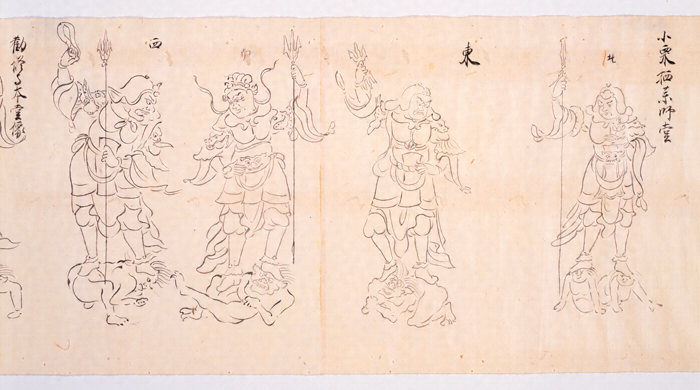 小栗栖薬師堂
北
東
西
勸修寺本堂像